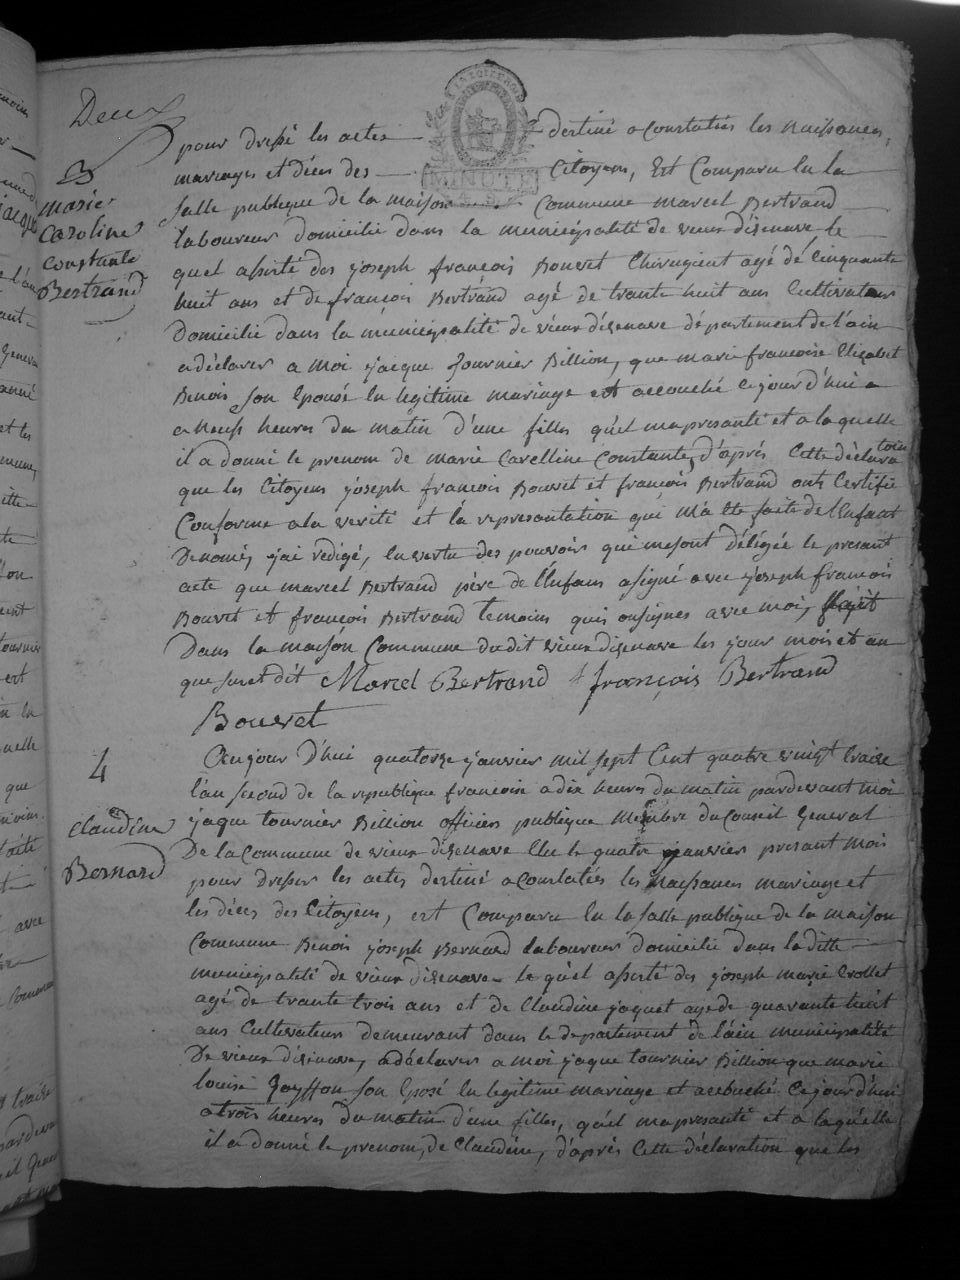 Deux
pour dressé les actes destiné a Constatiés les naissances,
mariages et décés des Citoyens, Est Comparu En la
MINUTE
3
salle publique de la maison Commune marcel Bertrand
marie
Caroline
Constante
Bertrand
laboureur domicilié dans la municipalité de vieux disenave le
quel assisté des joseph françois Bouvet Chirugient agé dé Cinquante
huit ans et de françois Bertrand agé de trante huit ans Cultivateur
Domicilié dans la municipalité de vieux disenave département de l'ain
a déclarer a moi jacque tournier Billion, que marie francoise Elizabet
Benois son Epousé En legitime mariage est accouché Ce jour d'hui a
a neuf heures du matin d'une filles qu'el ma presanté et a la quelle
il a donné le prenom de marie Carelline Constante, d'aprés Cette déclaration
que les Citoyens joseph françois Bouvet et françois Bertrand onts Certifié
Conforme a la verité et la represantation qui m'a été faite de l'Enfant
Denomé, j'ai rédigé, En vertu des pouvoirs qui me sont délégée le presant
acte que marcel Bertrand pére de l'Enfans a signé avec joseph francois
Bouvet et françois Bertrand temoins qui on signes avec moi, fait
Dans la maison Commune du dit vieux disenave les jour mois et an
que sus et dit Marcel Bertrand françois Bertrand
Bouvet
4
Claudine
Bernard
Aujour d'hui quatorze janvier mil sept Cent quatre vingt traise
l'an second de la republique francoise a dix heures du matin pardevant moi
jaque tournier Billion officier publique Membre du Conseil General
De la Commune de vieux disenave Elu le quatre janvier presant mois
pour dresser les actes destiné a Constatiés les Naissances mariage et
les décés des Citoyens, est Comparu En la salle publique de la maison
Commune Benois joseph Bernard laboureur domicilié dans la ditte
municipalité de vieux disenave le quel assisté des joseph marie Vrollet
agé de trante trois ans et de Claudine jaquet agé de quarante huit
ans Cultivateurs demeurant dans le departement de l'ain municipalité
De vieux disenave, a déclarer a moi jaque tournier Billion que marie
louise son Eposé En legitime mariage et accouché Ce jour d'hui
a trois heures du matin d'une filles, qu'el ma presanté et a laquelle
il a donné le prenom, de Claudine, d'aprés Cette déclaration que les